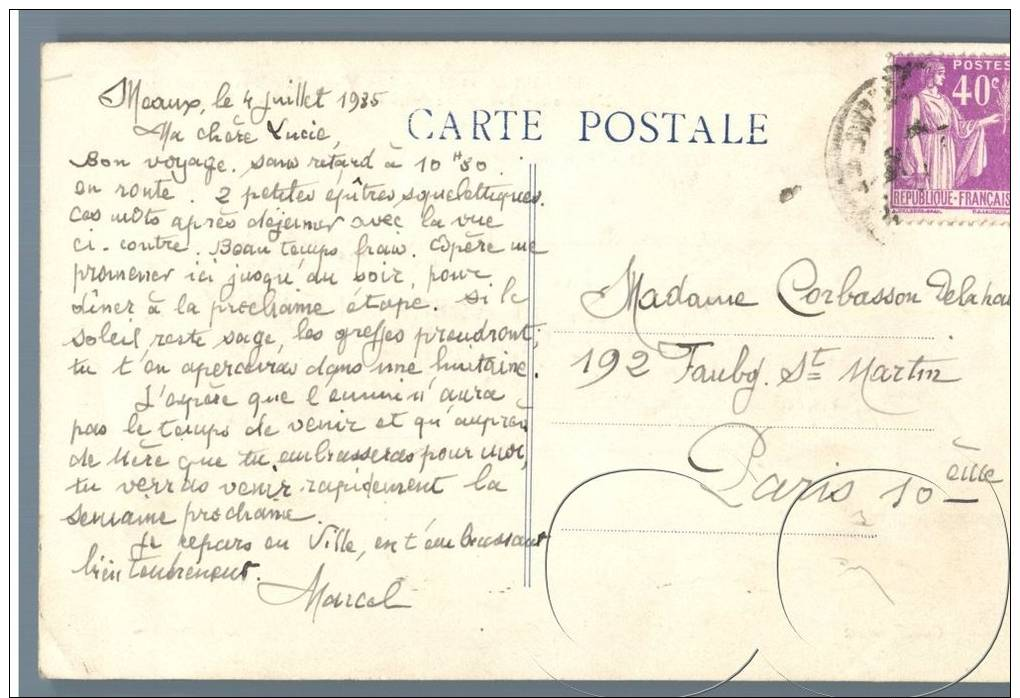 Meaux, le 4 juillet 1935
Ma chère Lucie,
Bon voyage. sans retard à 10 H 30
en route. 2 petites épîtres squelettiques.
ces mots après déjeuner avec la vue
ci-contre. Beau temps frais. espère me
promener ici jusqu'au soir, pour
dîner à la prochaine étape. Si le
soleil reste sage, les greffes prendront;
tu t'en apercevras dans une huitaine.
J'espère que l'ennui n'aura
pas le temps de venir et qu'auprès
de Mère que tu embrasseras pour moi,
tu verras venir rapidement la
semaine prochaine.
Je repars en Ville, en t'embrassant
bien tendrement.
Marcel
CARTE POSTALE
POSTES
40c
REPUBLIQUE-FRANÇAIS
Madame Corbasson Delaha
192 Faubg. St Martin
Paris 10 ème